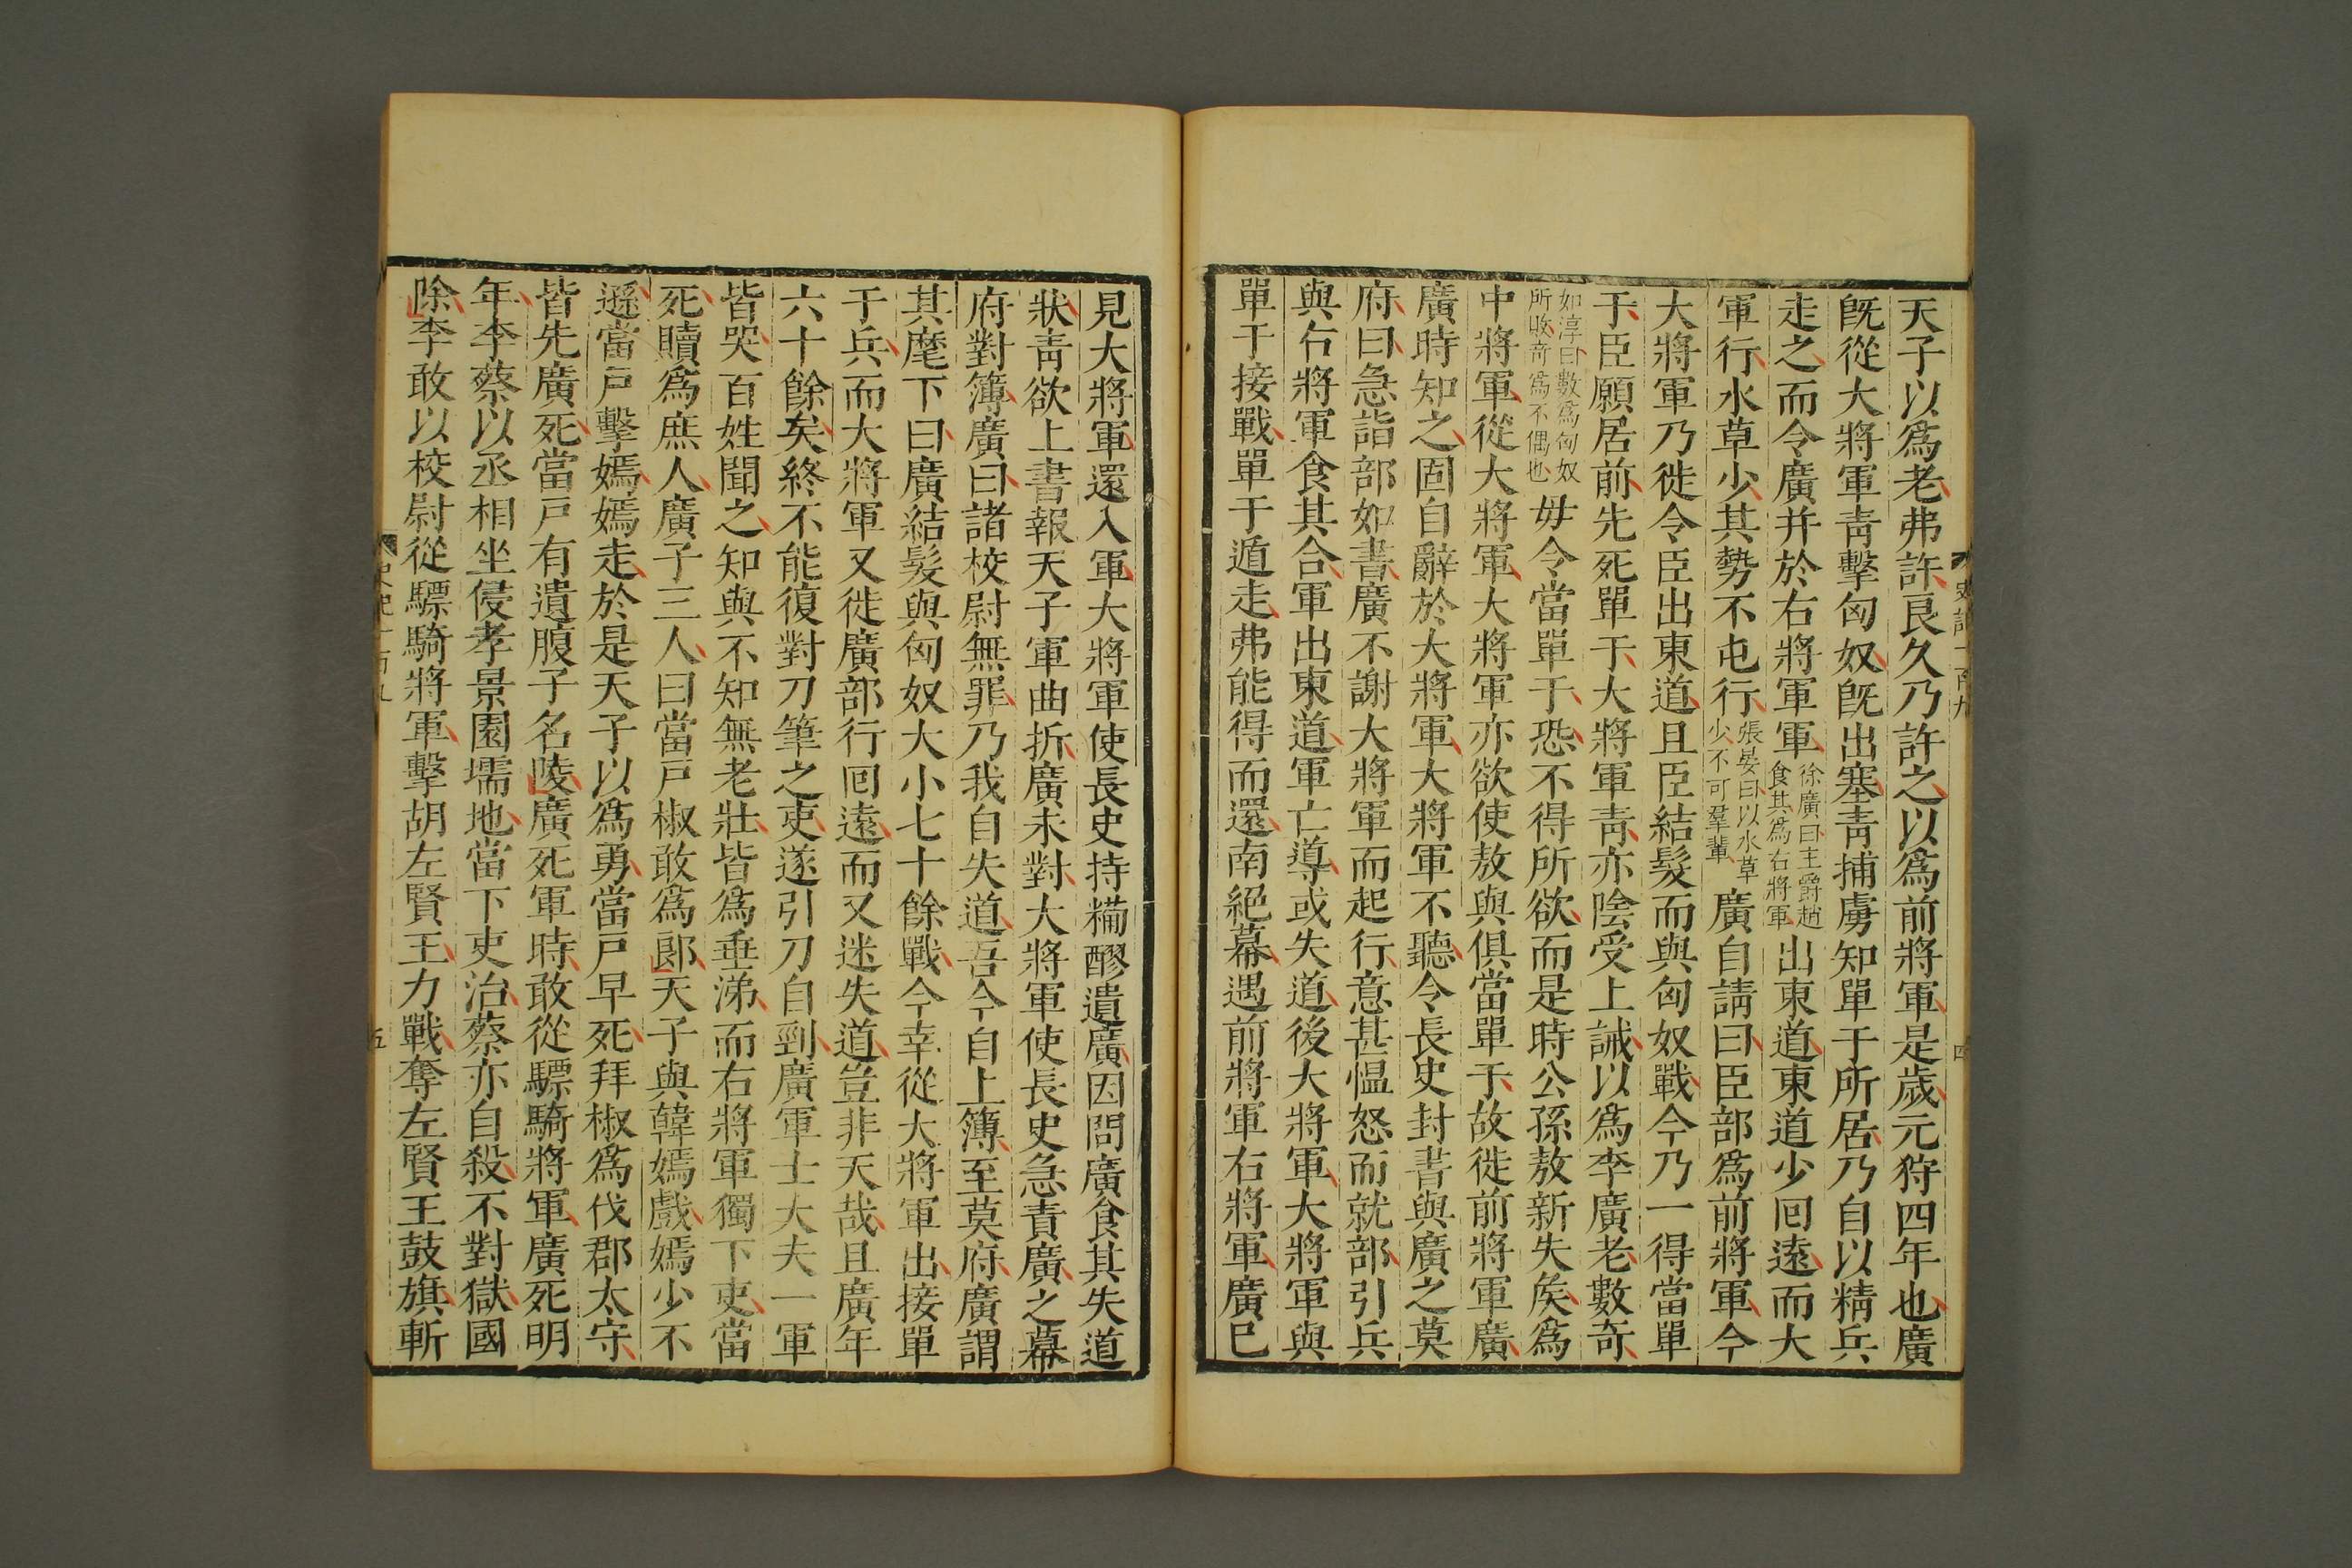 天子以爲老弗許良久乃許之以爲前將軍是歲元狩四年也廣
旣從大將軍靑擊匈奴旣出塞靑捕虜知單于所居乃自以精兵
走之而令廣并於右將軍軍徐廣曰主爵趙食其爲右將軍出東道東道少回遠而大
軍行水草少其勢不屯行張晏曰以水草少不可羣輩廣自請曰臣部爲前將軍今
大將軍乃徙令臣出東道且臣結髮而與匈奴戰今乃一得當單
于臣願居前先死單于大將軍靑亦陰受上誡以爲李廣老數奇
如淳曰數爲匈奴所收奇爲不偶也毋令當單于恐不得所欲而是時公孫敖新失矦爲
中將軍從大將軍大將軍亦欲使敖與俱當單于故徙前將軍廣
廣時知之固自辭於大將軍大將軍不聽令長史封書與廣之莫
府曰急詣部如書廣不謝大將軍而起行意甚慍怒而就部引兵
與右將軍食其合軍出東道軍亡導或失道後大將軍大將軍與
單于接戰單于遁走弗能得而還南絕幕遇前將軍右將軍廣已
見大將軍還入軍大將軍使長史持糒醪遺廣因問廣食其失道
狀靑欲上書報天子軍曲折廣未對大將軍使長史急責廣之幕
府對簿廣曰諸校尉無罪乃我自失道吾今自上簿至莫府廣謂
其麾下曰廣結髮與匈奴大小七十餘戰今幸從大將軍出接單
于兵而大將軍又徙廣部行回遠而又迷失道豈非天哉且廣年
六十餘矣終不能復對刀筆之吏遂引刀自剄廣軍士大夫一軍
皆哭百姓聞之知與不知無老壯皆爲垂涕而右將軍獨下吏當
死贖爲庶人廣子三人曰當戶椒敢爲郎天子與韓嫣戲嫣少不
遜當戶擊嫣嫣走於是天子以爲勇當戶早死拜椒爲伐郡太守
皆先廣死當戶有遺腹子名陵廣死軍時敢從驃騎將軍廣死明
年李蔡以丞相坐侵孝景園壖地當下吏治蔡亦自殺不對獄國
除李敢以校尉從驃騎將軍擊胡左賢王力戰奪左賢王鼓旗斬